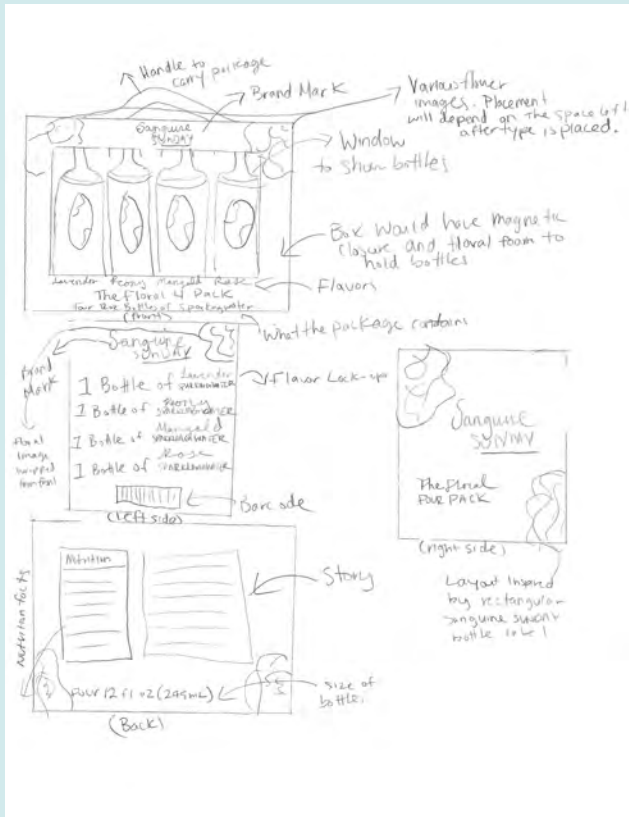 Handle to
carry package
Brand Mark
Various flower
images. Placement
will depend on the space left
after type is placed.
Sanguine
SUNDAY
Window
to show bottles
Box would have magnetic
closure and floral foam to
hold bottles
Lavender Peony Marigold Rose
Flavors
The Floral 4 Pack
Four 12oz Bottles of Sparkling water
(front)
What the package contains
Sanguine
SUNDAY
Brand
Mark
1 Bottle of Lavender
SPARKLING WATER
Flavor Lock-up
1 Bottle of Peony
SPARKLING WATER
1 Bottle of Marigold
SPARKLING WATER
1 Bottle of Rose
SPARKLING WATER
Floral
Image
wrapped
from front
Barcode
(Left side)
Sanguine
SUNDAY
The Floral
FOUR PACK
(right side)
Layout Inspired
by rectangular
sanguine sunday
bottle label
Nutrition
Nutrition facts
Story
Four 12 fl oz
size of
bottle.
(Back)